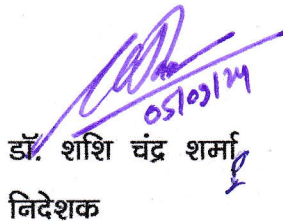 05/09/24
डॉ. शशि चंद्र शर्मा
निदेशक